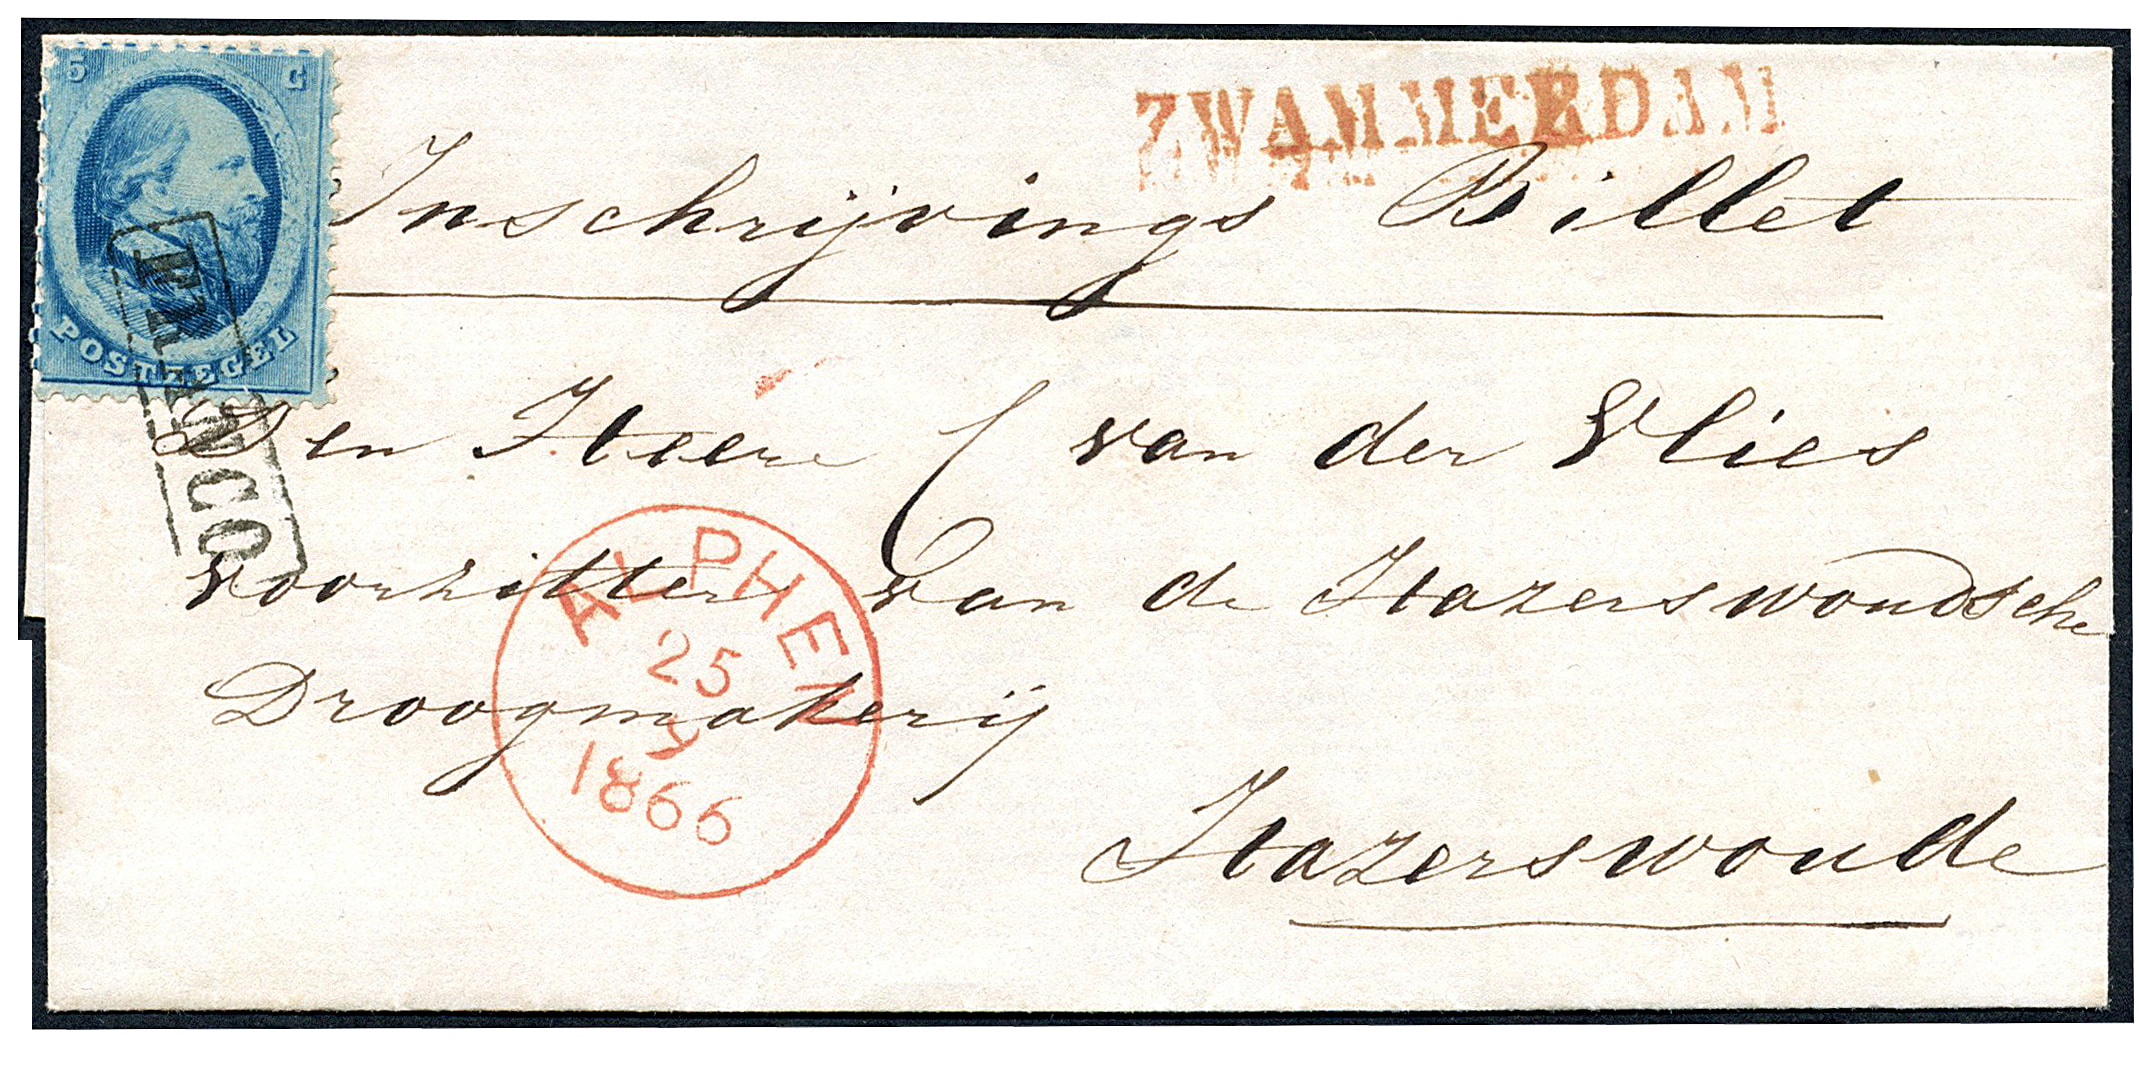 5 C
POSTZEGEL
FRANCO
ZWAMMERDAM
Inschrijvings Billet
Den Heere C van der Vlies
voorzitter van de Hazerswoudsche
Droogmakerij
Hazerswoude
ALPHEN
25
1866